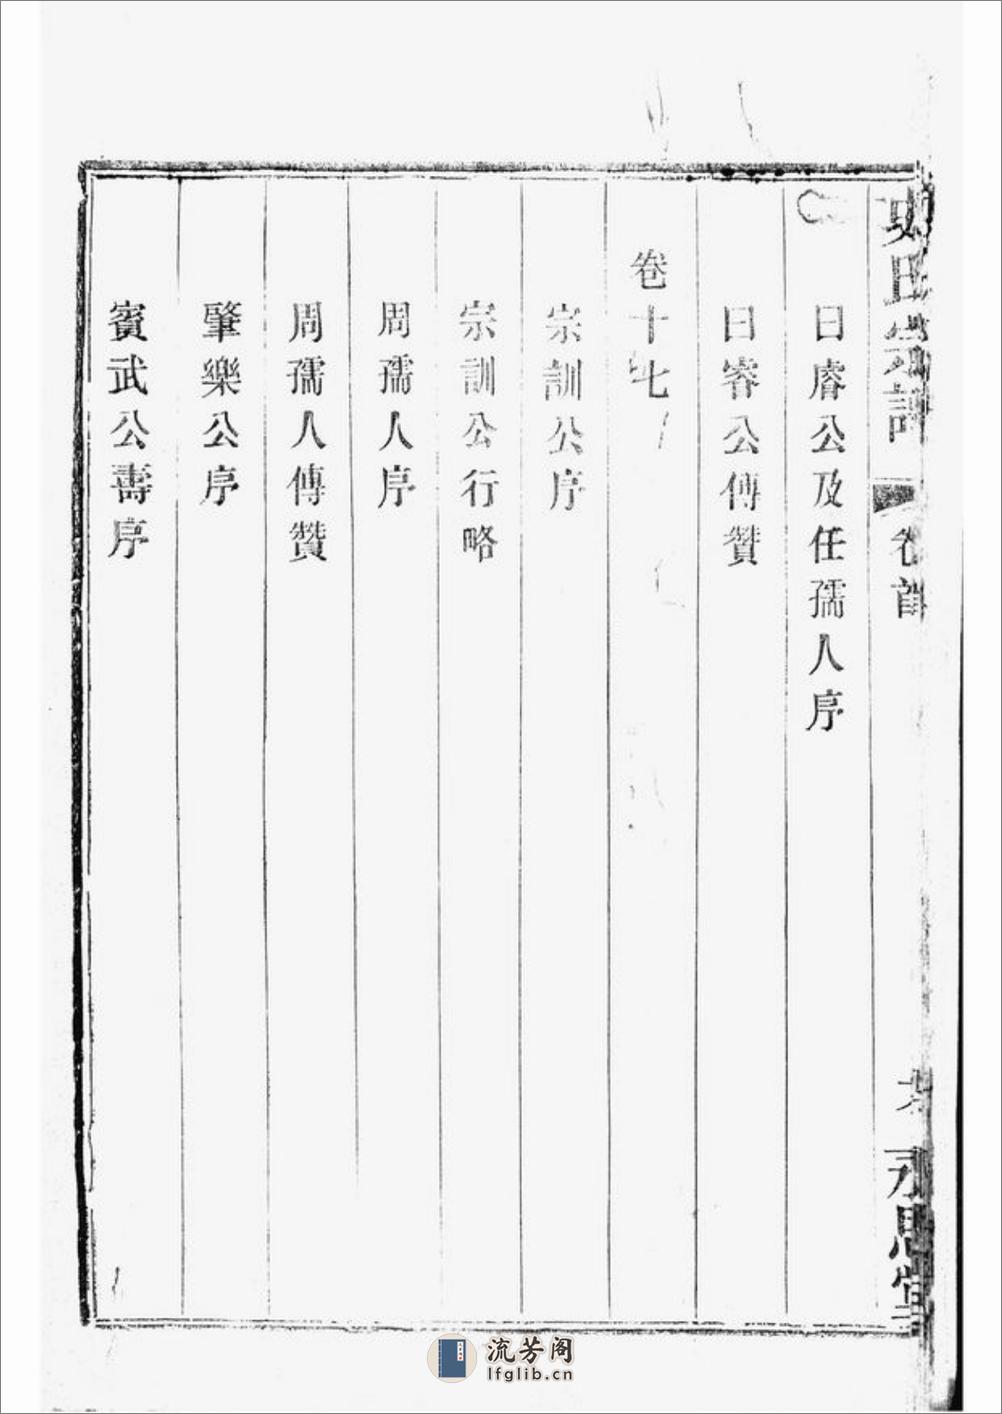 氏宗譜
卷首
永思堂
曰睿公及任孺人序
曰睿公傳贊
卷十七
宗訓公序
宗訓公行略
周孺人序
周孺人傳贊
肇樂公序
賓武公壽序
流芳阁
lfglib.cn